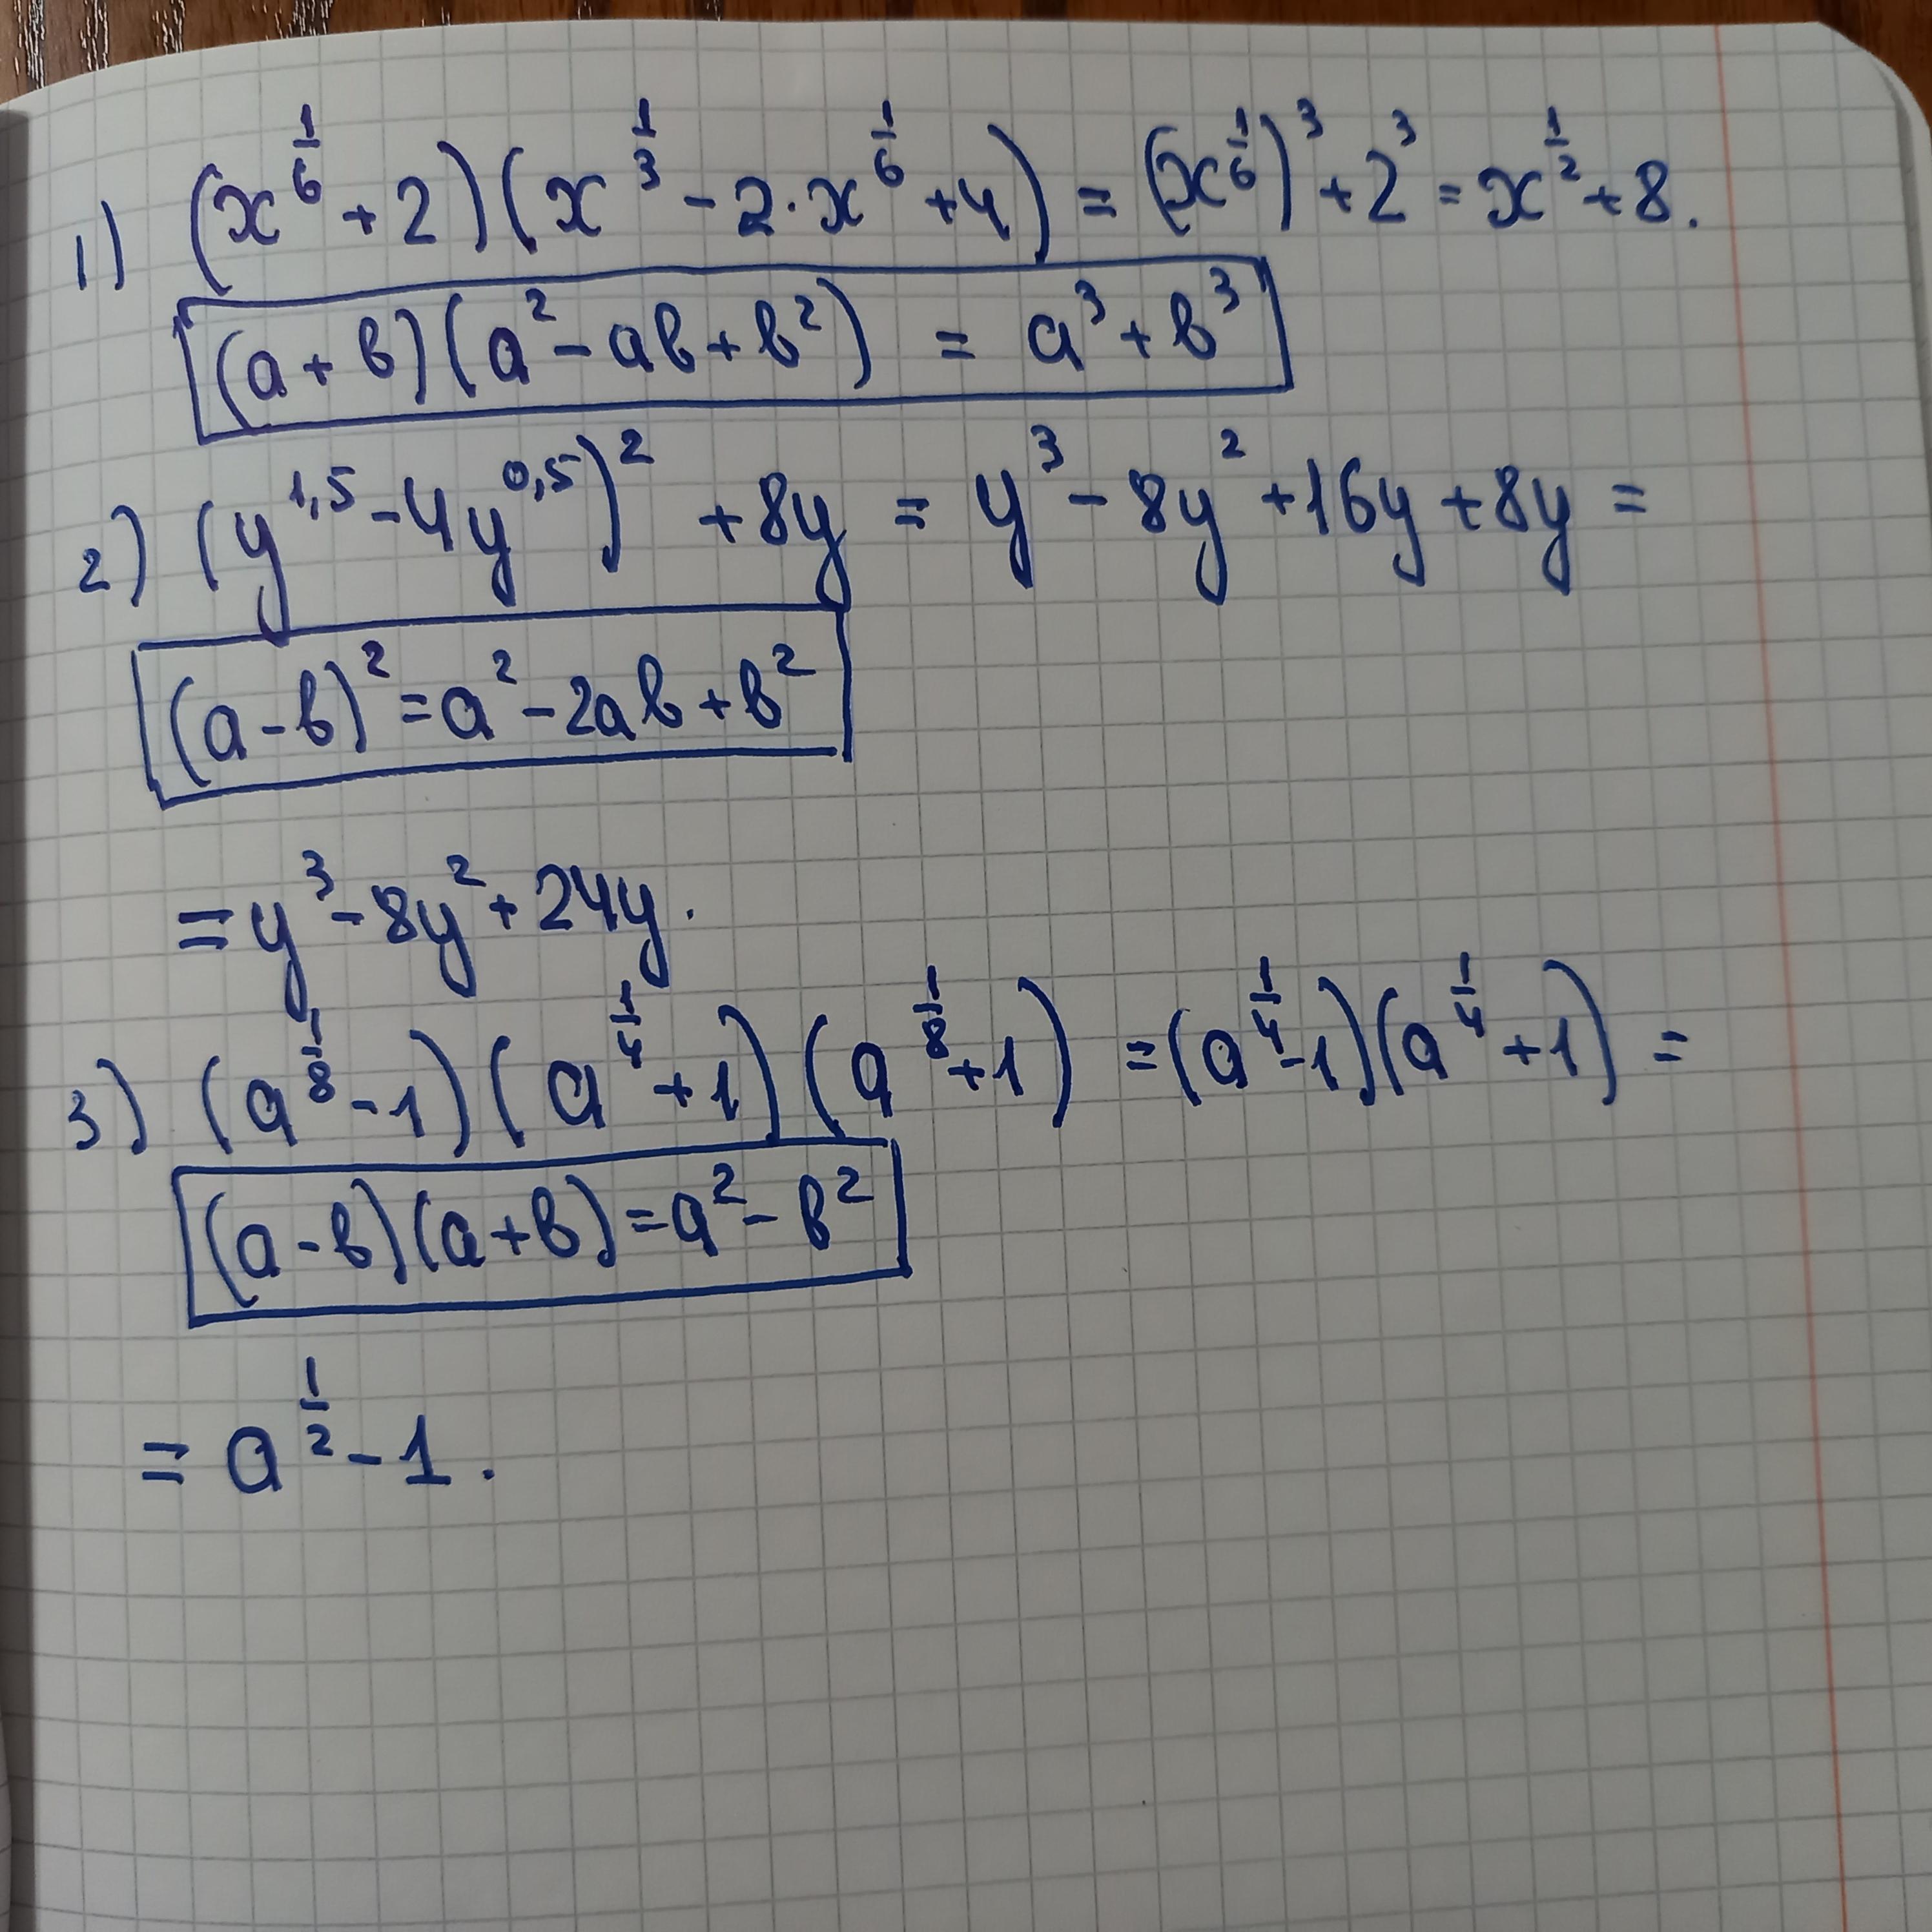 1) (x^{1/6} + 2)(x^{1/3} - 2·x^{1/6} + 4) = (x^{1/6})^3 + 2^3 = x^{1/2} + 8.
(a + в)(a^2 - aв + в^2) = a^3 + в^3
2) (y^{1,5} - 4y^{0,5})^2 + 8y = y^3 - 8y^2 + 16y + 8y =
(a - в)^2 = a^2 - 2aв + в^2
= y^3 - 8y^2 + 24y.
3) (a^{1/8} - 1)(a^{1/4} + 1)(a^{1/8} + 1) = (a^{1/4} - 1)(a^{1/4} + 1) =
(a - в)(a + в) = a^2 - в^2
= a^{1/2} - 1.